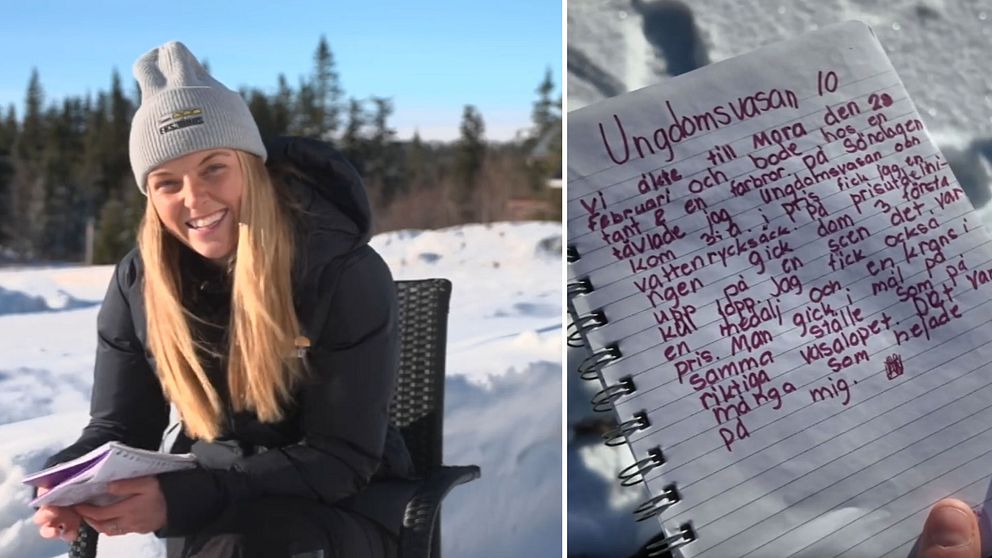 Ungdomsvasan 10
Vi åkte till Mora den 28
februari och bode hos en
tant & en farbror. på Söndagen
tävlade jag ungdomsvasan och
kom 3:a i pris fick jag en
vattenrycksäck. på prisutdelni-
ngen gick dom 3 första
upp på en scen det var
kul lopp Jag fick också
en medalj och en krans i
pris. Man gick i mål på
samma ställe som på
riktiga vasalopet Det var
många som hejade
på mig.